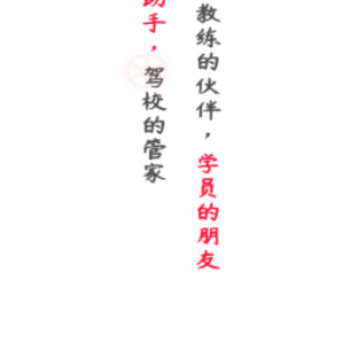 教练的伙伴，学员的朋友
助手，驾校的管家